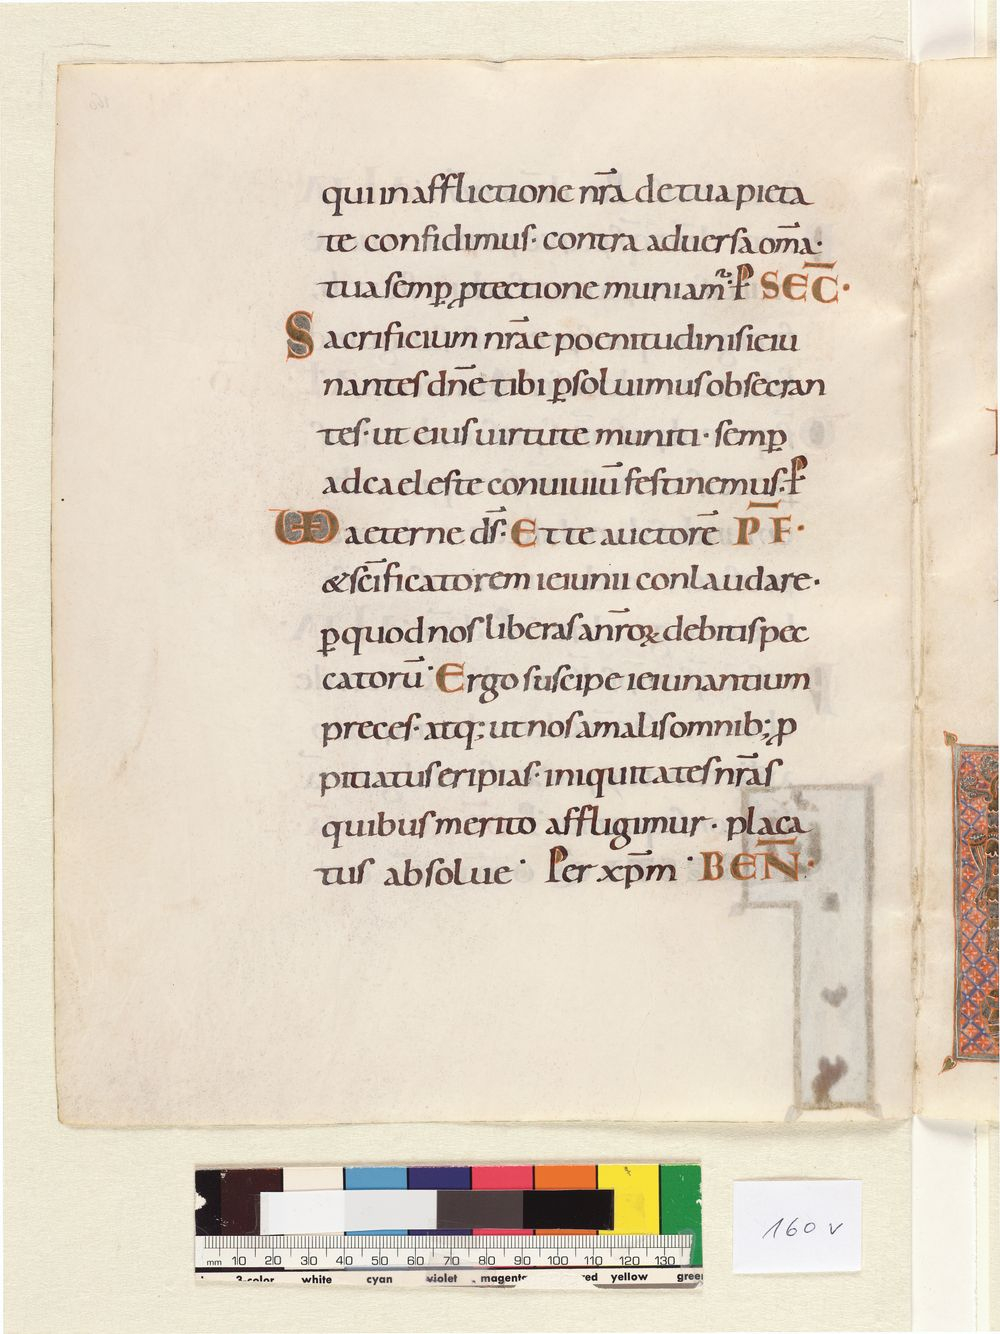 qui in afflictione nr̄a de tua pieta
te confidimus· contra aduersa om̄a·
tua semꝑ ꝓtectione muniamᷣ· P̱ SEC̄·
Sacrificium nr̄ae poenitudinis ieiu
nantes dn̄e tibi ꝑsoluimus obsecran
tes· ut eius uirtute muniti· semꝑ
ad caeleste conuiuiū festinemus· P̱
UD aeterne ds̄· Et te auctorē P̄ F·
& sc̄ificatorem ieiunii conlaudare·
ꝑ quod nos liberas a nr̄oꝝ debitis pec
catorū· Ergo suscipe ieiunantium
preces· atq; ut nos a malis omnib; ꝓ
pitiatus eripias· iniquitates nr̄as
quibus merito affligimur· placa
tus absolue· Per xp̄m· BEN̄·
160 v
mm 10 20 30 40 50 60 70 80 90 100 110 120 130
3-color white cyan violet magenta red yellow green
160